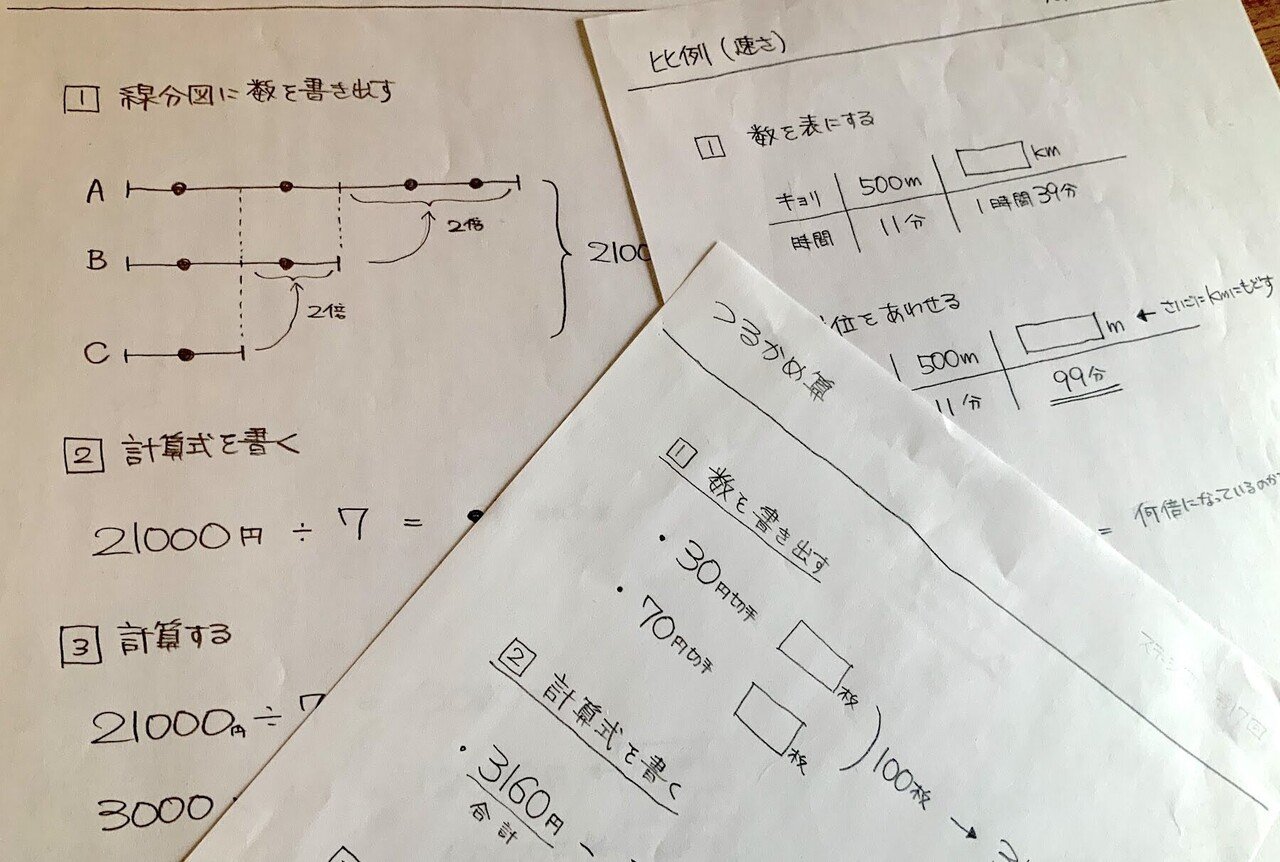 1 線分図に数を書き出す
A
2倍
B
2倍
C
2100
2 計算式を書く
21000円 ÷ 7 =
3 計算する
21000円 ÷ 7
3000
比例(速さ)
1 数を表にする
キョリ 500m km
時間 11分 1時間39分
位をあわせる
500m m ← さいごにkmにもどす
11分 99分
= 何倍になっているのか
つるかめ算
1 数を書き出す
・30円切手 枚
・70円切手 枚
100枚 →
2 計算式を書く
・3160円 -
合計